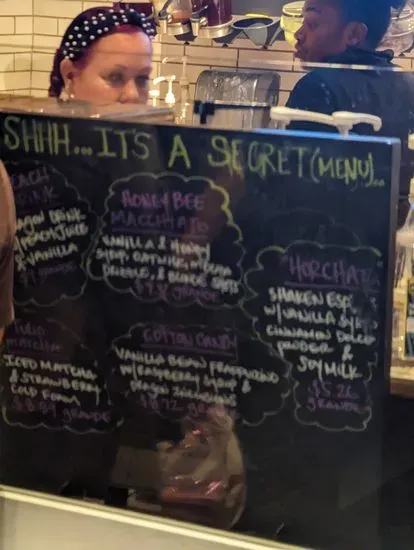 SHHH...IT'S A SECRET(MENU)...
DRINK
W/PEACH JUICE
& VANILLA
GRANDE
HONEY BEE
MACCHIATO
VANILLA & HONEY
SYRUP OATMILK W/
DRIZZLE, &
GRANDE
HORCHATA
SHAKEN ESP
W/VANILLA SYRUP
CINNAMON DOLCE
POWDER &
SOYMILK
$5.26
GRANDE
MATCHA
ICED MATCHA
& STRAWBERRY
COLD FOAM
GRANDE
COTTON CANDY
VANILLA BEAN FRAPPUCCINO
W/RASPBERRY SYRUP &
DRAGON INCLUSIONS
GRANDE